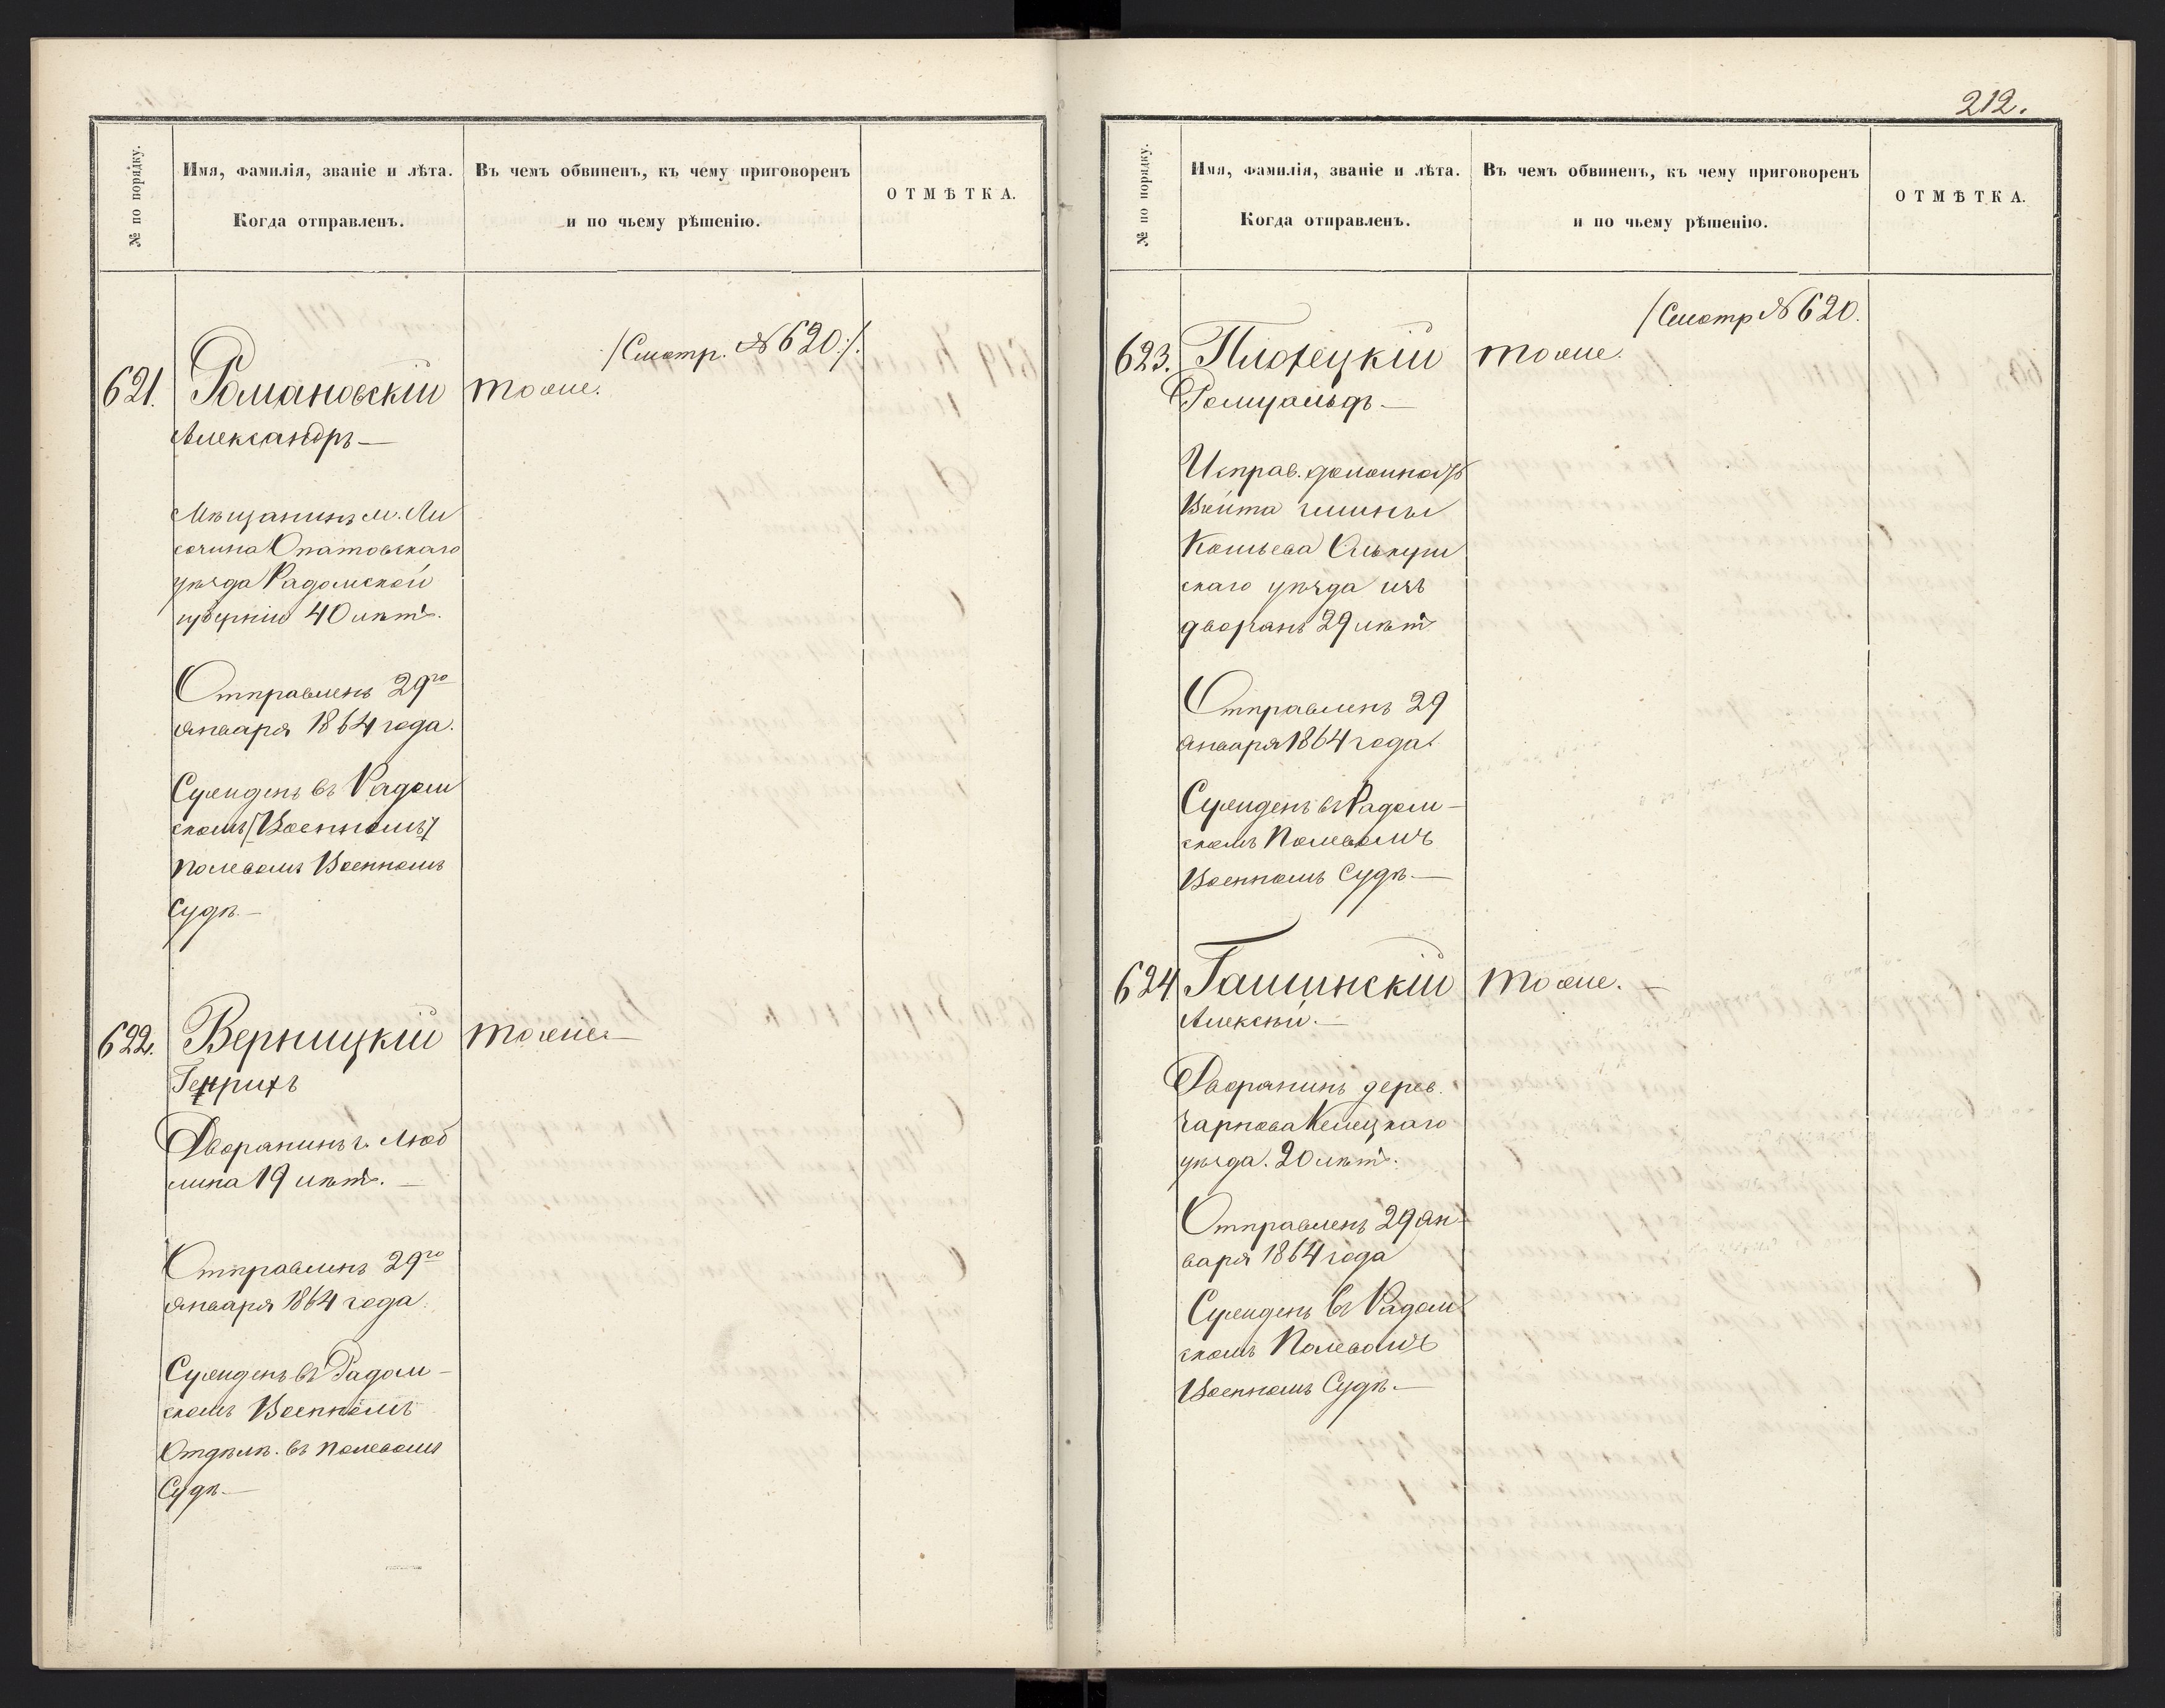 № по порядку.
Имя, фамилія, званіе и лѣта.
Когда отправленъ.
Въ чемъ обвиненъ, къ чему приговоренъ
и по чьему рѣшенію.
ОТМѢТКА.
/Смотр. № 620./.
621. Романовскій тоже.
Александръ —
Мѣщанинъ м. Ли
сочина Опатовскаго
уѣзда Радомской
губерніи 40 лѣтъ.
Отправленъ 29го
января 1864 года.
Сужденъ въ Радом
скомъ [Военномъ]
Полевомъ Военномъ
Судѣ. —
622. Верницкій тоже. —
Генрихъ
Дворянинъ г. Люб
лина 19 лѣтъ. —
Отправленъ 29го
января 1864 года.
Сужденъ въ Радом —
скомъ Военномъ
Отдѣлѣ. въ полевомъ
Судѣ —
212.
№ по порядку.
Имя, фамилія, званіе и лѣта.
Когда отправленъ.
Въ чемъ обвиненъ, къ чему приговоренъ
и по чьему рѣшенію.
ОТМѢТКА.
/Смотр № 620.
623. тоже.
Ромуальдъ. —
Исправ. должность
Войта гмины
Олькуш
скаго уѣзда изъ
дворянъ 29 лѣтъ
Отправленъ 29
января 1864 года.
Сужденъ въ Радом —
скомъ Полевомъ
Военномъ Судѣ. —
624 Гашинскій тоже. —
Алексѣй. —
Дворянинъ дерев.
Чарнова Келецкаго
уѣзда. 20 лѣтъ.
Отправленъ 29 ян
варя 1864 года
Сужденъ въ Радом
скомъ Полевомъ
Военномъ Судѣ. —